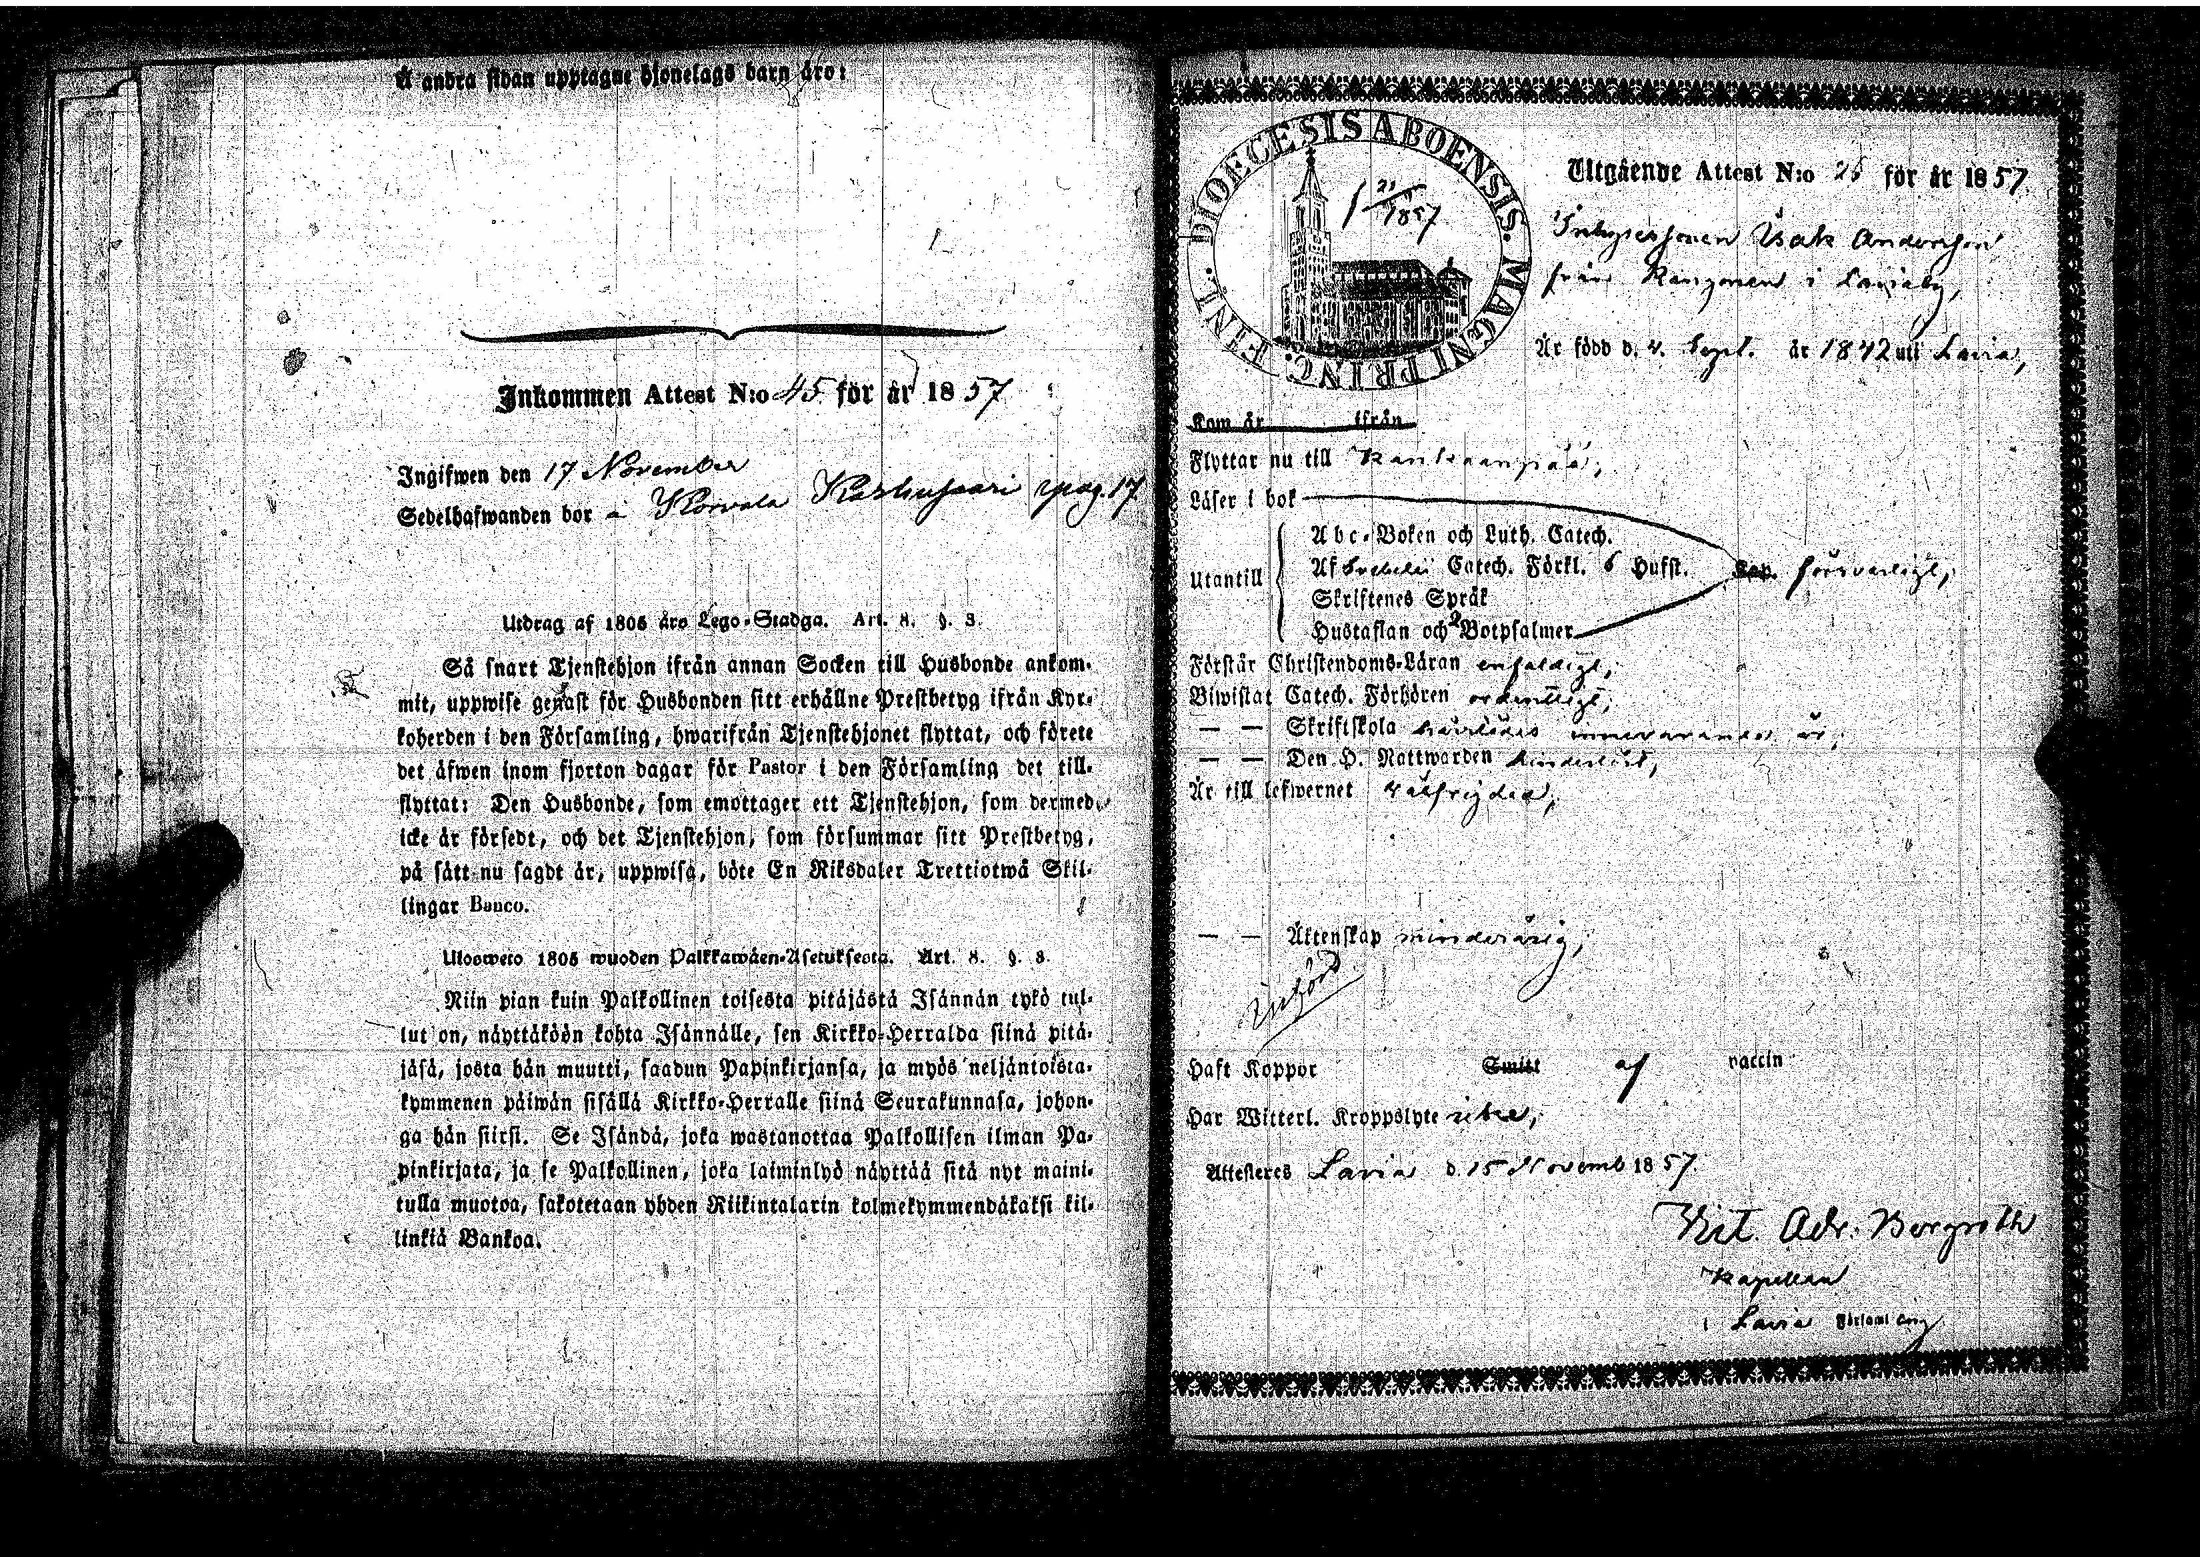 Å andra sidan upptagne hjonelags barn äro:
Inkommen Attest N:o 45 för år 1857
Ingifwen den 17 November
Sedelhafwanden bor å Korvala Karhusaari pag. 17
Utdrag af 1805 års Lego-Stadga. Art. 8. §. 3.
Så snart Tjenstehjon ifrån annan Socken till Husbonde ankom-
mit, uppwise genast för Husbonden sitt erhållne Prestbetyg ifrån Kyr-
koherden i den Församling, hwarifrån Tjenstehjonet flyttat, och förete
det äfwen inom fjorton dagar för Pastor i den Församling det till-
flyttat: Den Husbonde, som emottager ett Tjenstehjon, som dermed
icke är försedt, och det Tjenstehjon, som försummar sitt Prestbetyg,
på sätt nu sagdt är, uppwisa, böte En Riksdaler Trettiotwå Skil-
lingar Banco.
Ulosweto 1805 wuoden Palkkawäen-Asetuksesta. Art. 8. §. 3.
Niin pian kuin Palkollinen toisesta pitäjästä Isännän tykö tul-
lut on, näyttäköön kohta Isännälle, sen Kirkko-Herralda siinä pitä-
jäsä, josta hän muutti, saadun Papinkirjansa, ja myös neljäntoista-
kymmenen päiwän sisällä Kirkko-Herralle siinä Seurakunnasa, johon-
ga hän siirsi. Se Isändä, joka wastanottaa Palkollisen ilman Pa-
pinkirjata, ja se Palkollinen, joka laiminlyö näyttää sitä nyt maini-
tulla muotoa, sakotetaan yhden Riikintalarin kolmekymmendäkaksi kil-
linkiä Bankoa.
DIOECESIS ABOENSIS. MAGNI PRINC. FINL.
21/11 1857
Utgående Attest N:o 26 för år 1857
Inhysessonen Isak Andersson
från Kangonen i Laviaby,
Är född d. 4. Sept. år 1842 uti Lavia,
Kom år ifrån
Flyttar nu till Kankaanpää,
Läser i bok
Utantill
Abc-Boken och Luth. Catech.
Af Svebelii Catech. Förkl. 6 Hufst. Cap. försvarligt,
Skriftenes Språk
Hustaflan och 2 Botpsalmer
Förstår Christendoms-Läran enfaldigt,
Biwistat Catech. Förhören ordentligt,
— — Skriftskola härstädes innevarande år,
— — Den H. Nattwarden
Är till lefwernet välfrejdad,
— — Äktenskap minderårig,
Införd
Haft Koppor Smitt af vaccin
Har Witterl. Kroppslyte icke,
Attesteres Lavia d. 15 Novemb 1857.
Krit. Adr. Borgroth
Kapellan
i Lavia Församling